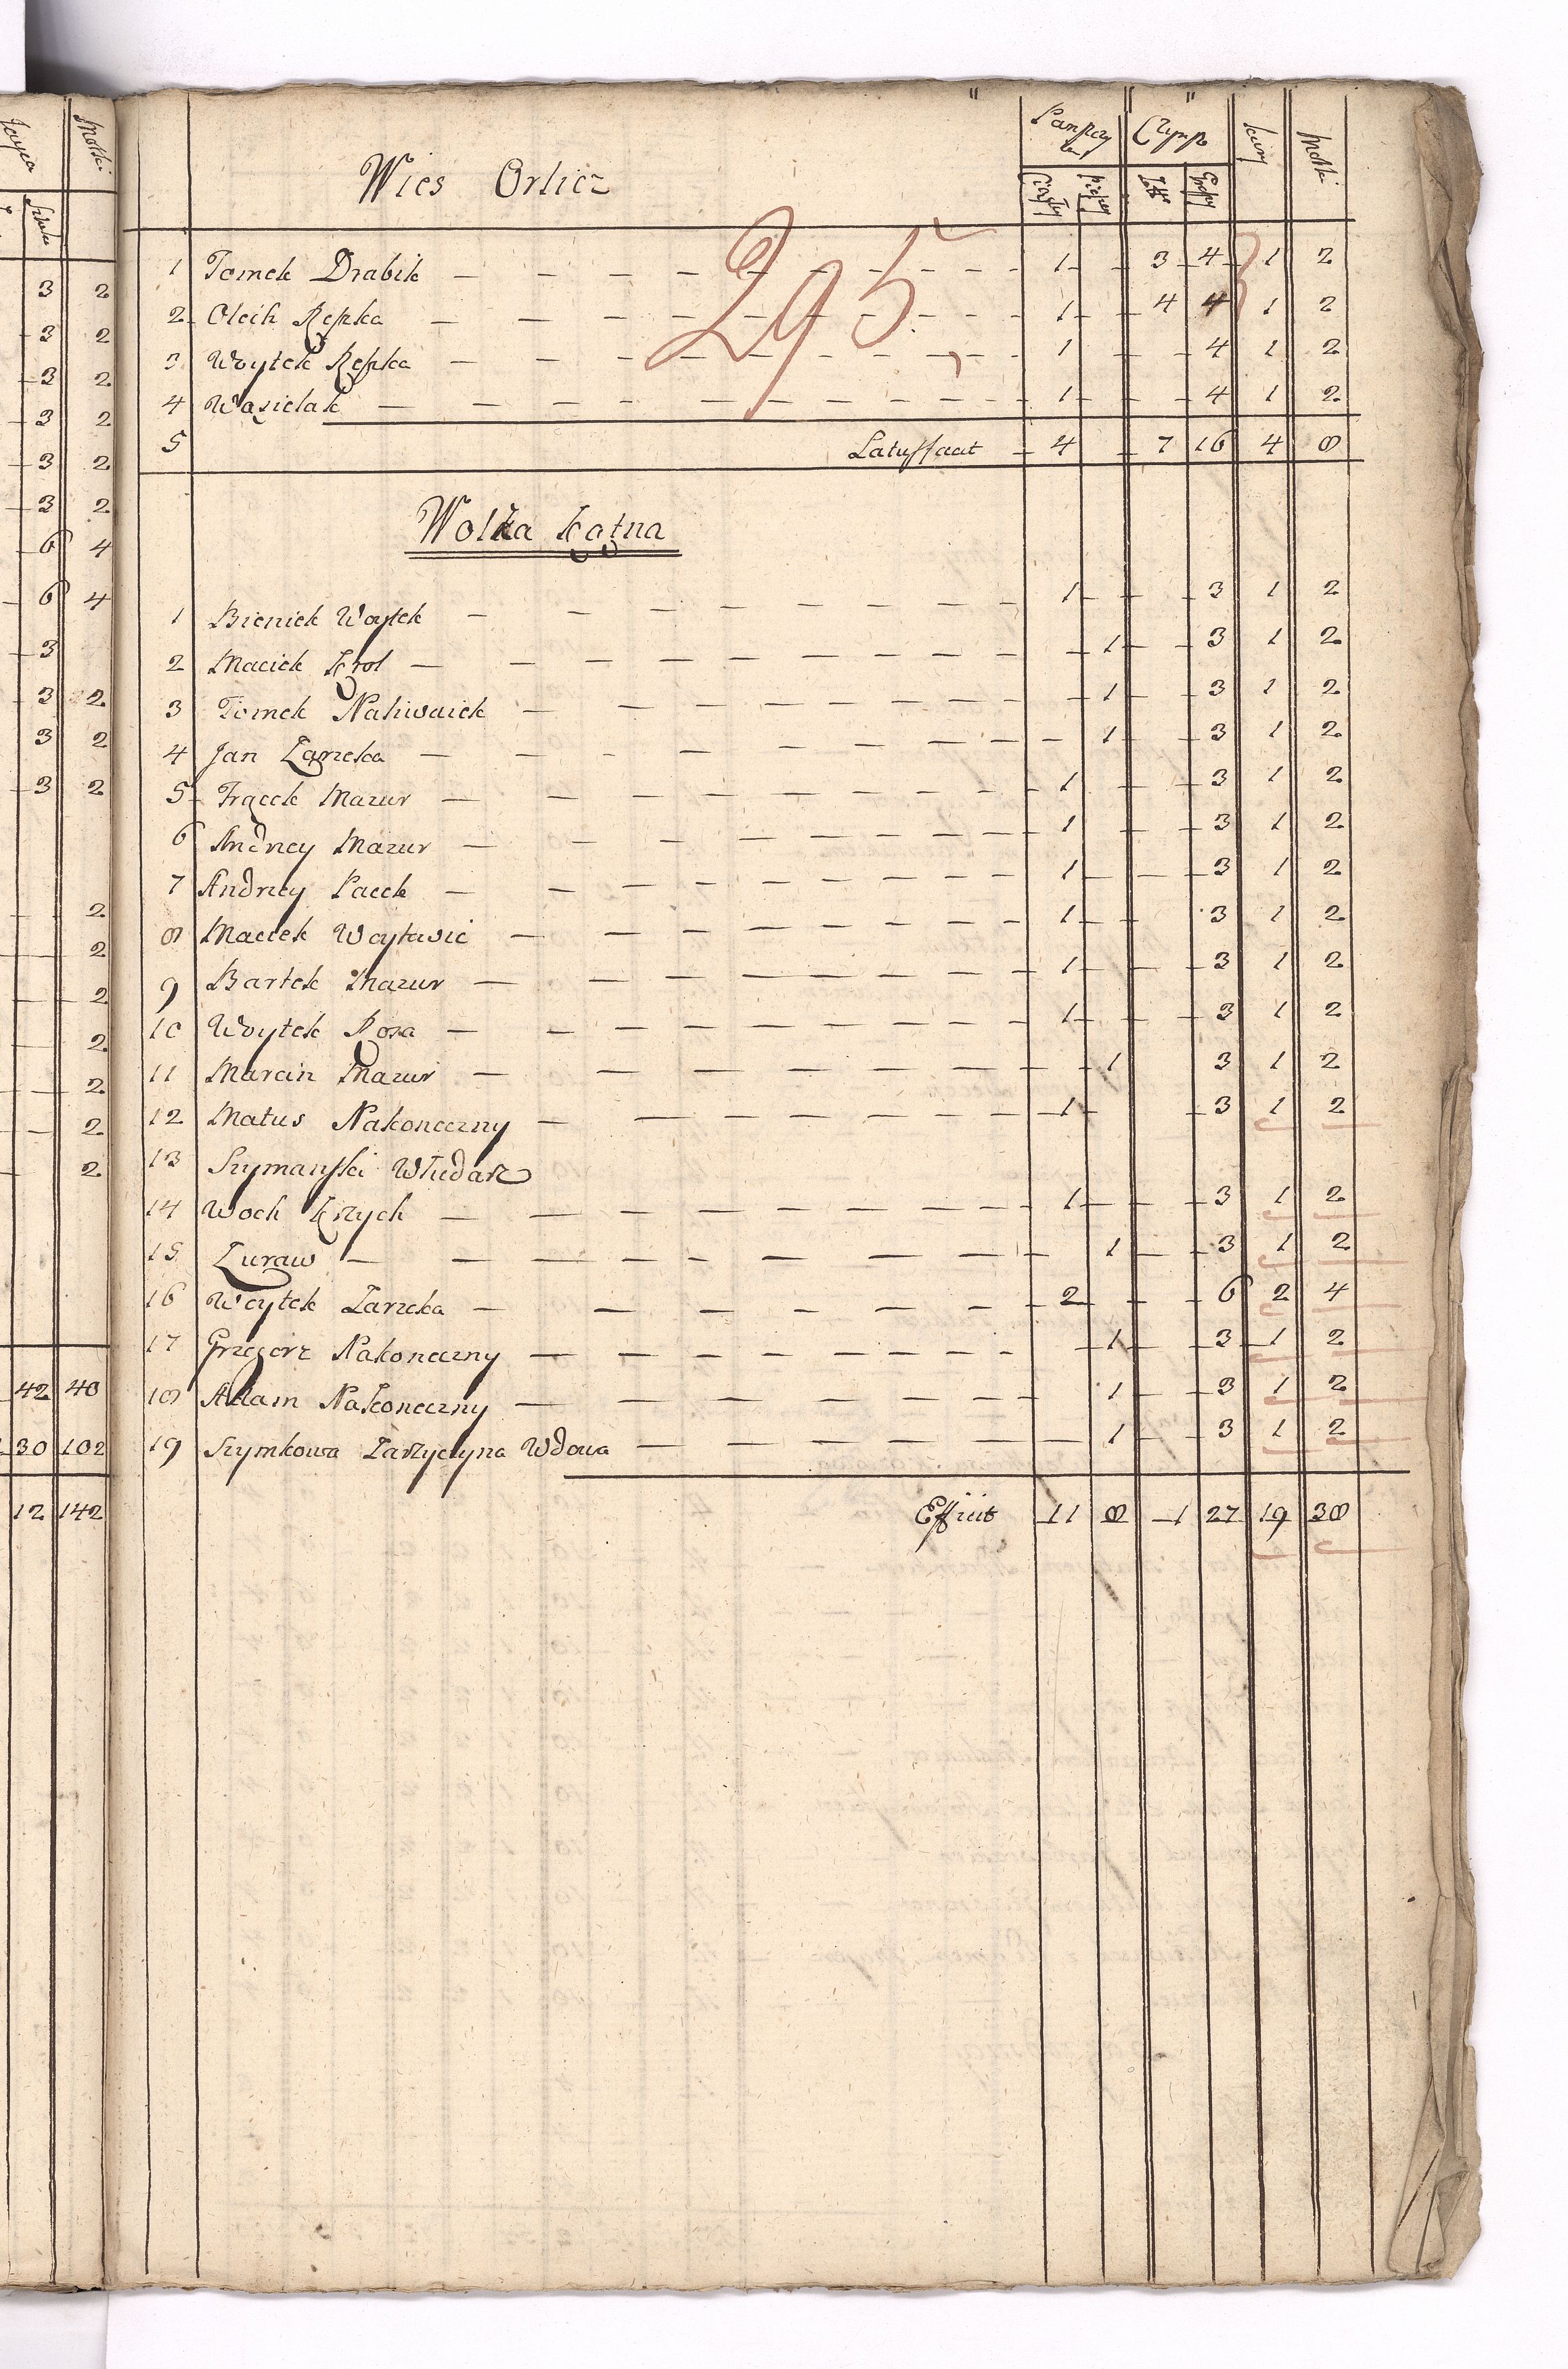 Wies Orlicz
Pańszczy Czynsz kury Motki
Ciągły Pieszy Złłe Groszy
295
1 Tomek Drabik 1 3 4 1 2
2 Oleih Rępka 1 4 4 1 2
3 Woytek Rępka 1 4 1 2
4 Wasielak 1 4 1 2
5 Latusfaat 4 7 16 4 8
Wolka kątna
1 Bieniek Woytek 1 3 1 2
2 Maciek Krol 1 3 1 2
3 Tomek Naliwaiek 1 3 1 2
4 Jan Zarzeka 1 3 1 2
5 Frącek Mazur 1 3 1 2
6 Andrzey Mazur 1 3 1 2
7 Andrzey Pacek 1 3 1 2
8 Maciek Woytowic 1 3 1 2
9 Bartek Mazur 1 3 1 2
10 Woytek Koza 1 3 1 2
11 Marcin Mazur 1 3 1 2
12 Matus Nakoneczny 1 3 1 2
13 Szymanski Włudarz
14 Woch Krzych 1 3 1 2
15 Zuraw 1 3 1 2
16 Woytek Zarzeka 2 6 2 4
17 Grzegorz Nakoneczny 1 3 1 2
18 Adam Nakoneczny 1 3 1 2
19 Szymkowa Zarzyczyna Wdowa 1 3 1 2
Efficit 11 8 1 27 19 38
Motki
3 2
3 2
3 2
3 2
3 2
3 2
6 4
6 4
3
3 2
3 2
3 2
2
2
2
2
2
2
2
42 40
30 102
12 142